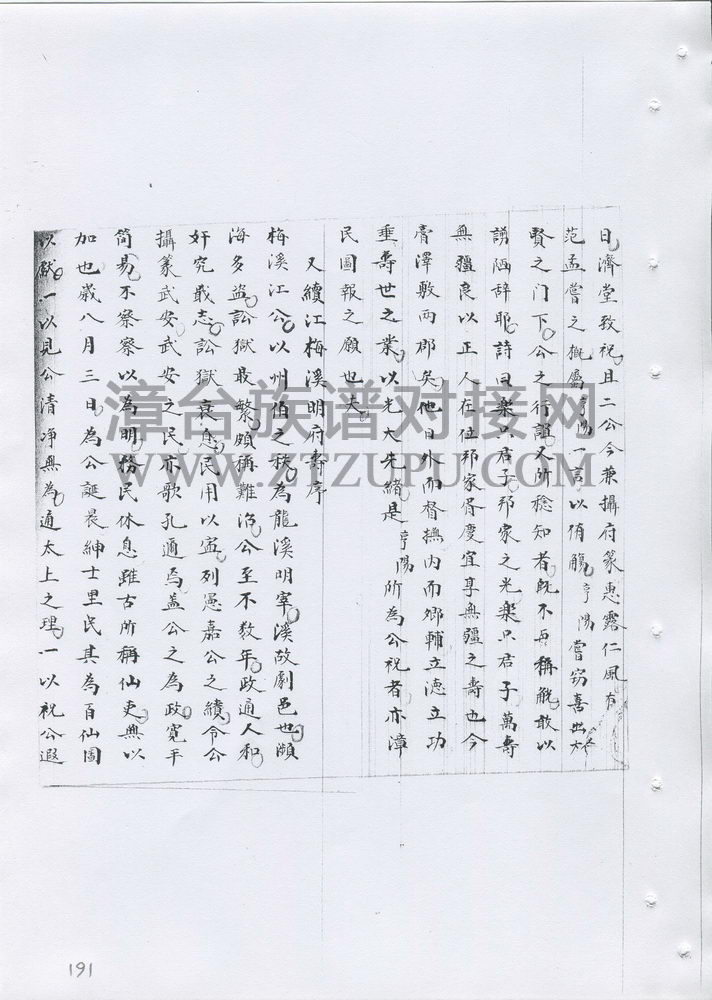 日濟堂致祝且二公今兼攝府篆惠露仁風有
范孟嘗之概屬亨陽一言以侑觴亨陽嘗窃喜出大
賢之门下公之行誼又所稔知者既不斐稱觥敢以
謭陋辞耶詩曰樂只君子邦家之光樂只君子萬壽
無疆良以正人在位邦家胥慶宜享無疆之壽也今
膏澤敷两郡矣他日外而督撫内而卿輔立德立功
垂壽世之業以光大先緒是亨陽所為公祝者亦漳
民圖報之願也夫
又續江梅溪明府壽序
梅溪江公以州伯之秩為龍溪明宰溪故劇邑也瀕
海多盗訟獄最繁頗稱難治公至不数年政通人和
奸宄戢志訟獄衰息民用以寍列憲嘉公之績令公
攝篆武安武安之民亦歌孔邇焉盖公之為政寛平
简易不察察以為明務民休息雖古所稱仙吏無以
加也歲八月三日為公誕晨紳士里民其為百仙圖
以献一以見公清净無為通太上之理一以祝公遐
漳台族谱对接网
WWW.ZTZUPU.COM
191